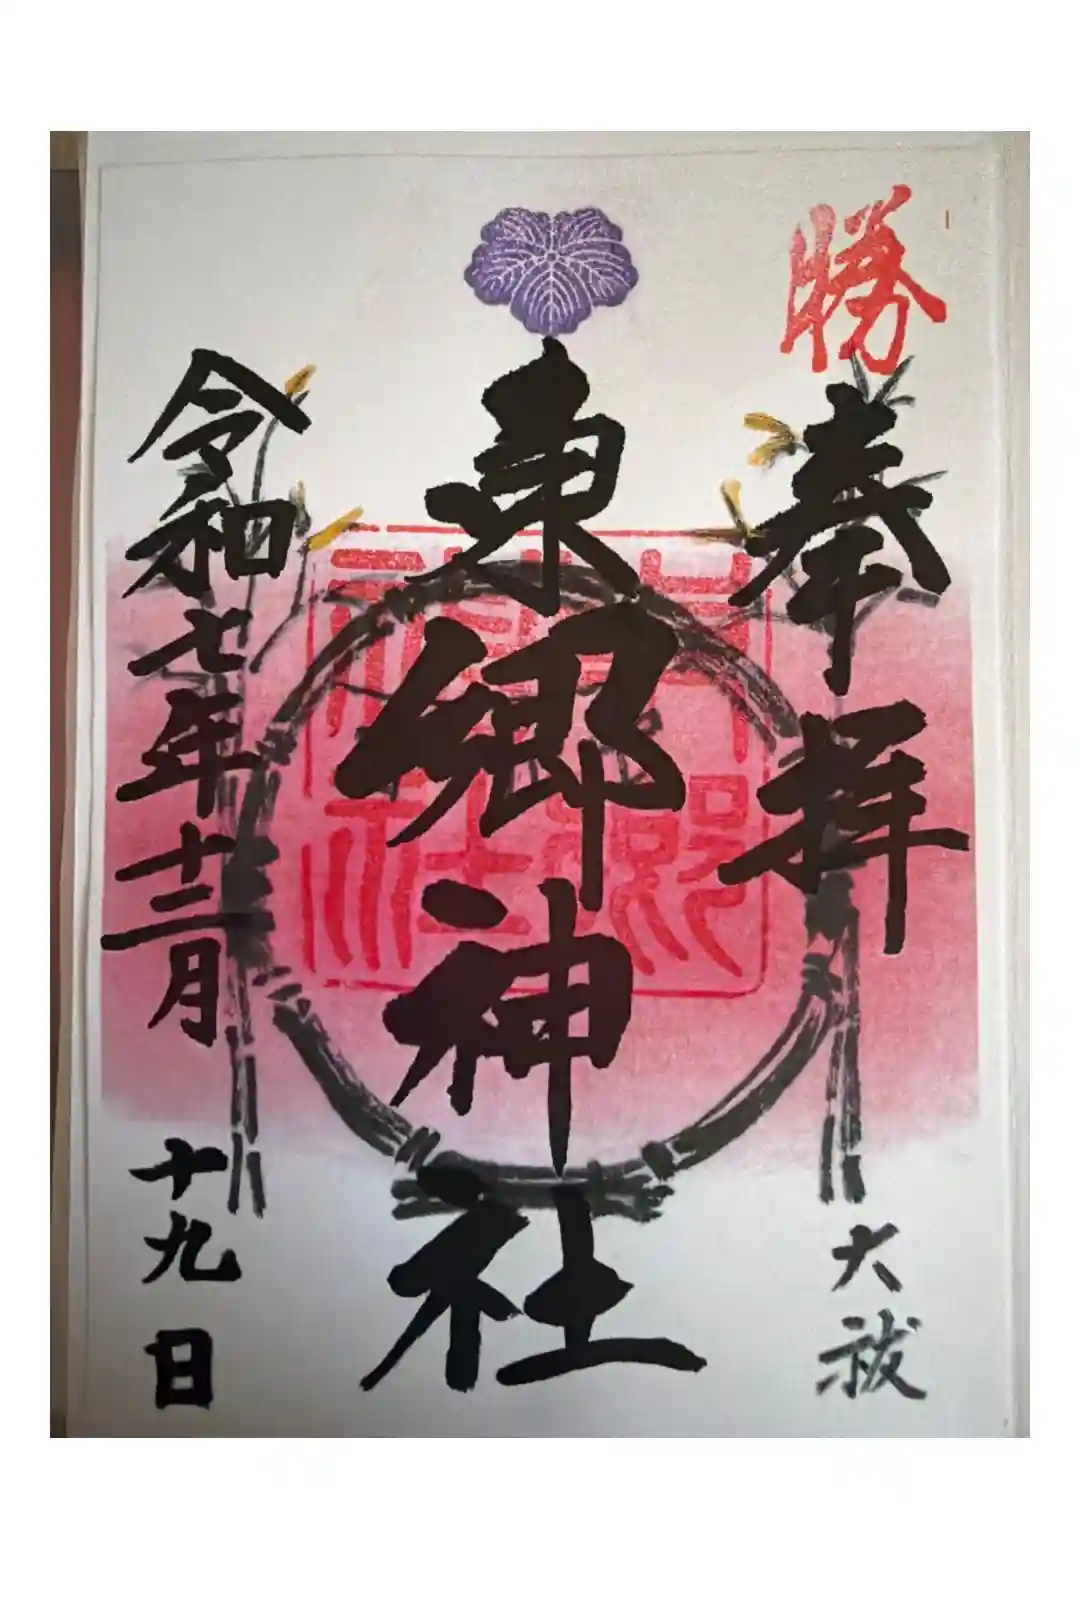 勝
奉拝
大祓
東郷神社
東郷神社
令和七年十二月
十九日